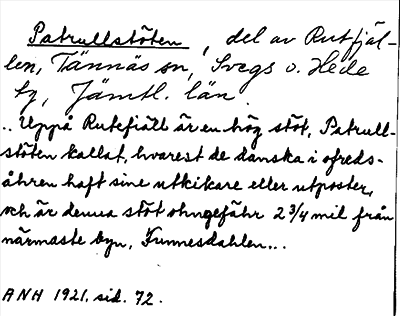 Patrullstöten, del av Rutfjäl-
len, Tännäs sn, Svegs o. Hede
tg, Jämtl. län.
.. Uppå Rutefiäll är en hög stöt, Patrull-
stöten kallat, hvarest de danska i ofreds-
åhren haft sine utkikare eller utposter,
och är denna stöt ohngefähr 2 3/4 mil från
närmaste byn, Funnesdahlen...
ANH 1921, sid. 72.